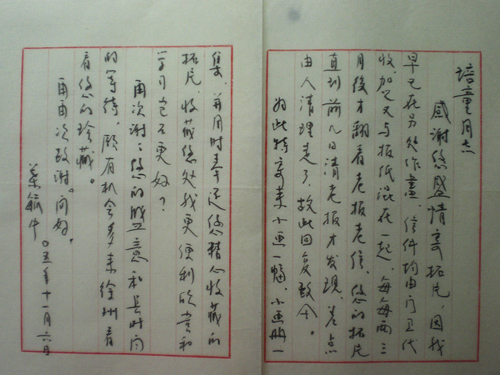 培童同志
感谢您盛情寄拓片，因我
早已在另处作画，信件均由门卫代
收，加之又与报纸混在一起，每每两三
月后才翻看老报老信，您的拓片
直到前几日清老报才发现，差点
由人清理走了，故此回复致今。
为此特寄来小画一幅，小画册一
集，并同时奉还您心收藏的
拓片，收藏您处我更便利欣赏和
学习岂不更好？
再次谢谢您的盛意和长时间
的等待，愿有机会多来徐州看
看您的珍藏。
再再次致谢。问好。
葉毓中
〇五年十一月六日